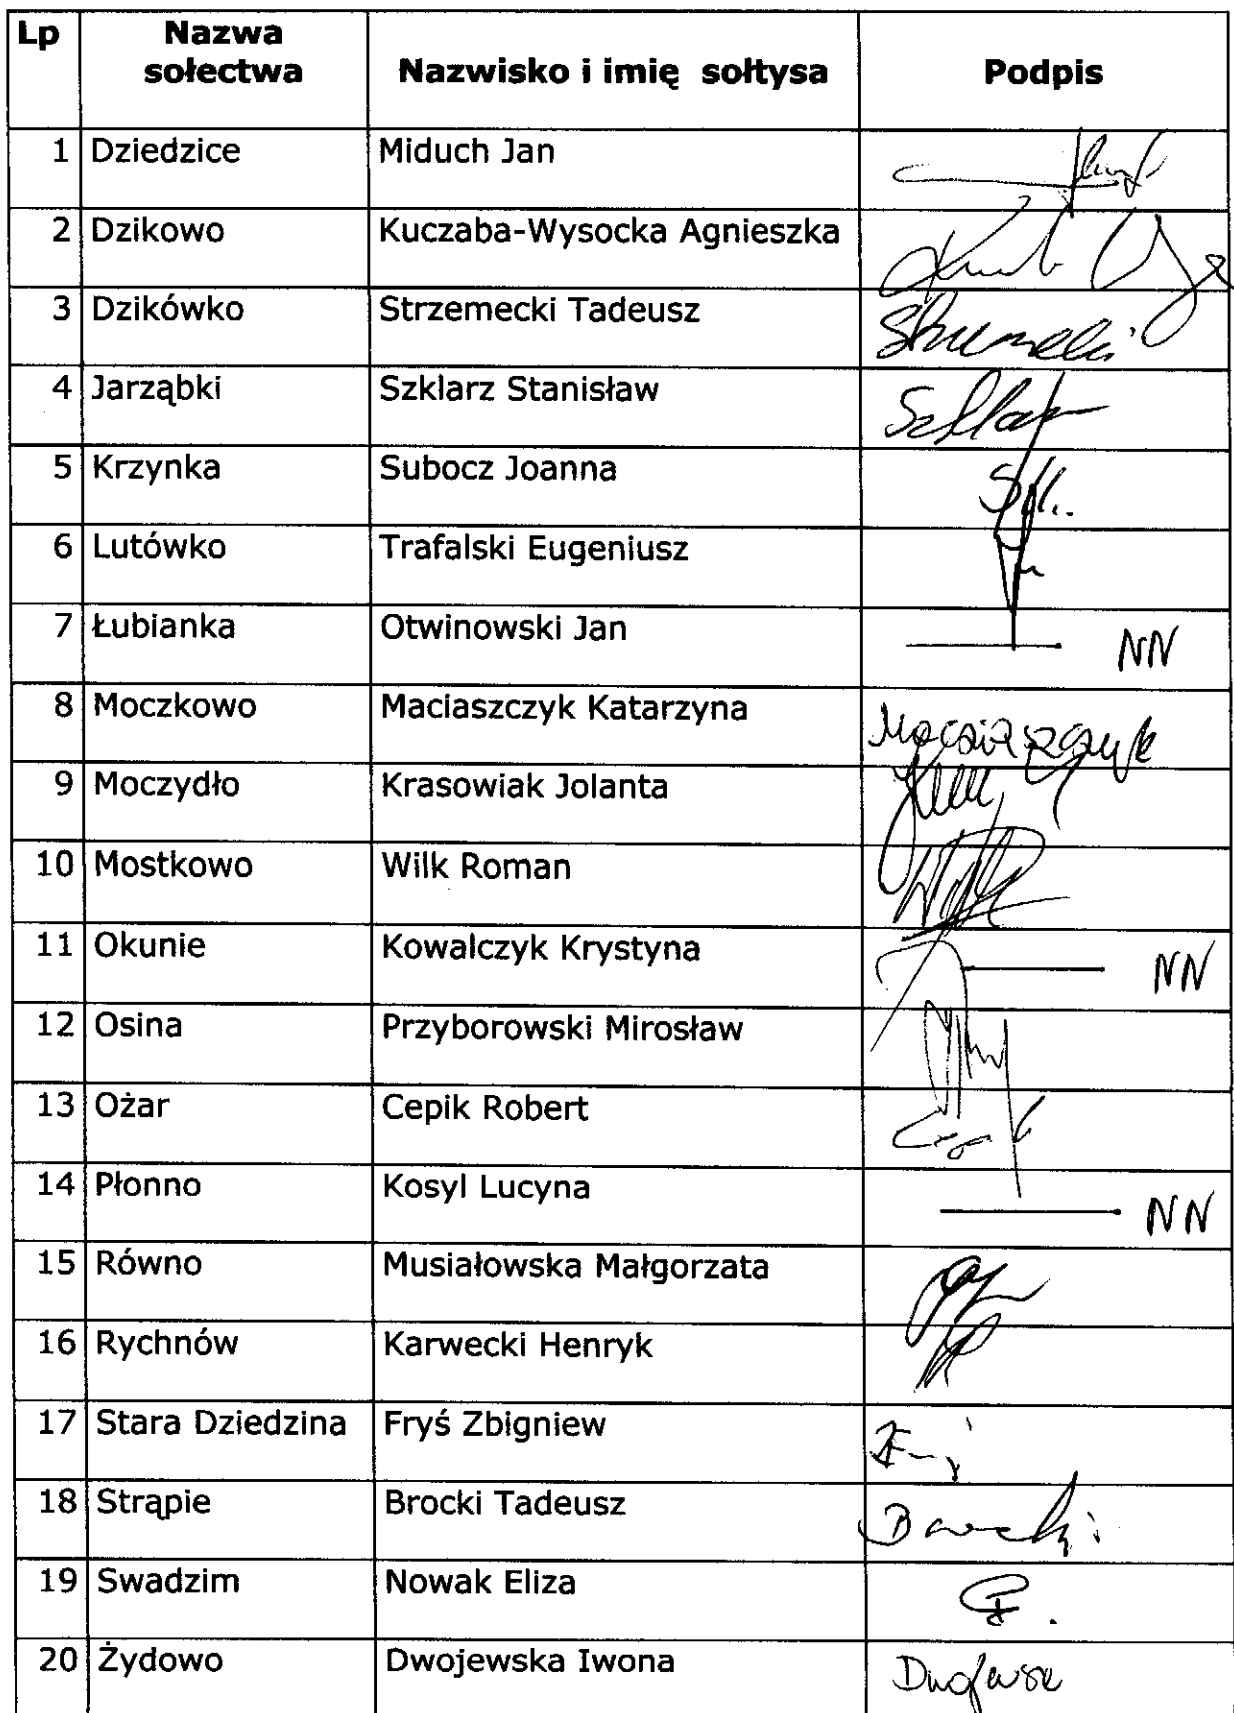 Lp Nazwa sołectwa Nazwisko i imię sołtysa Podpis
1 Dziedzice Miduch Jan
2 Dzikowo Kuczaba-Wysocka Agnieszka
3 Dzikówko Strzemecki Tadeusz
4 Jarząbki Szklarz Stanisław
5 Krzynka Subocz Joanna
6 Lutówko Trafalski Eugeniusz
7 Łubianka Otwinowski Jan NN
8 Moczkowo Maciaszczyk Katarzyna
9 Moczydło Krasowiak Jolanta
10 Mostkowo Wilk Roman
11 Okunie Kowalczyk Krystyna NN
12 Osina Przyborowski Mirosław
13 Ożar Cepik Robert
14 Płonno Kosyl Lucyna NN
15 Równo Musiałowska Małgorzata
16 Rychnów Karwecki Henryk
17 Stara Dziedzina Fryś Zbigniew
18 Strąpie Brocki Tadeusz
19 Swadzim Nowak Eliza
20 Żydowo Dwojewska Iwona